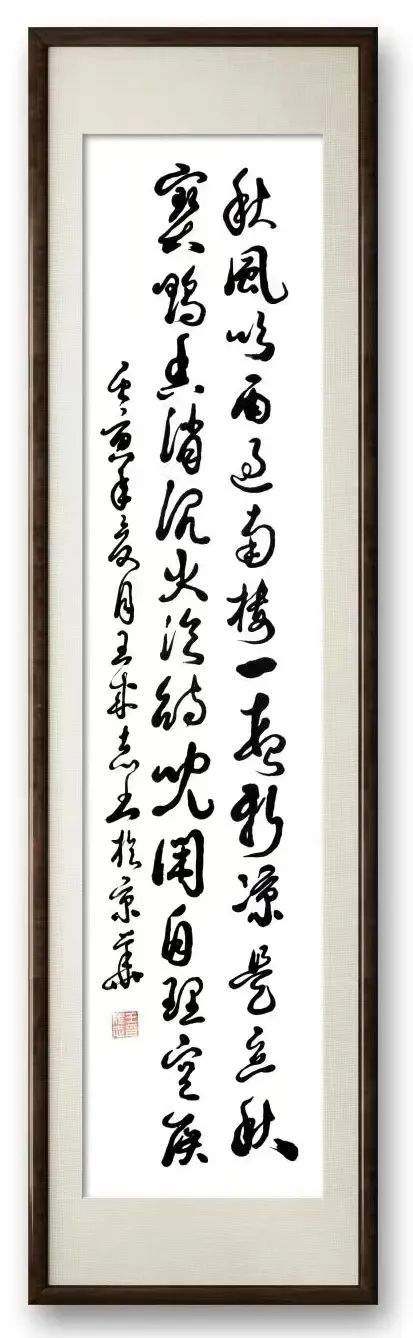 秋風吹雨過南樓一夜新涼是立秋
寶鴨香消沉火冷侍兒閑自理空侯
壬寅年夏月王成志書於京華